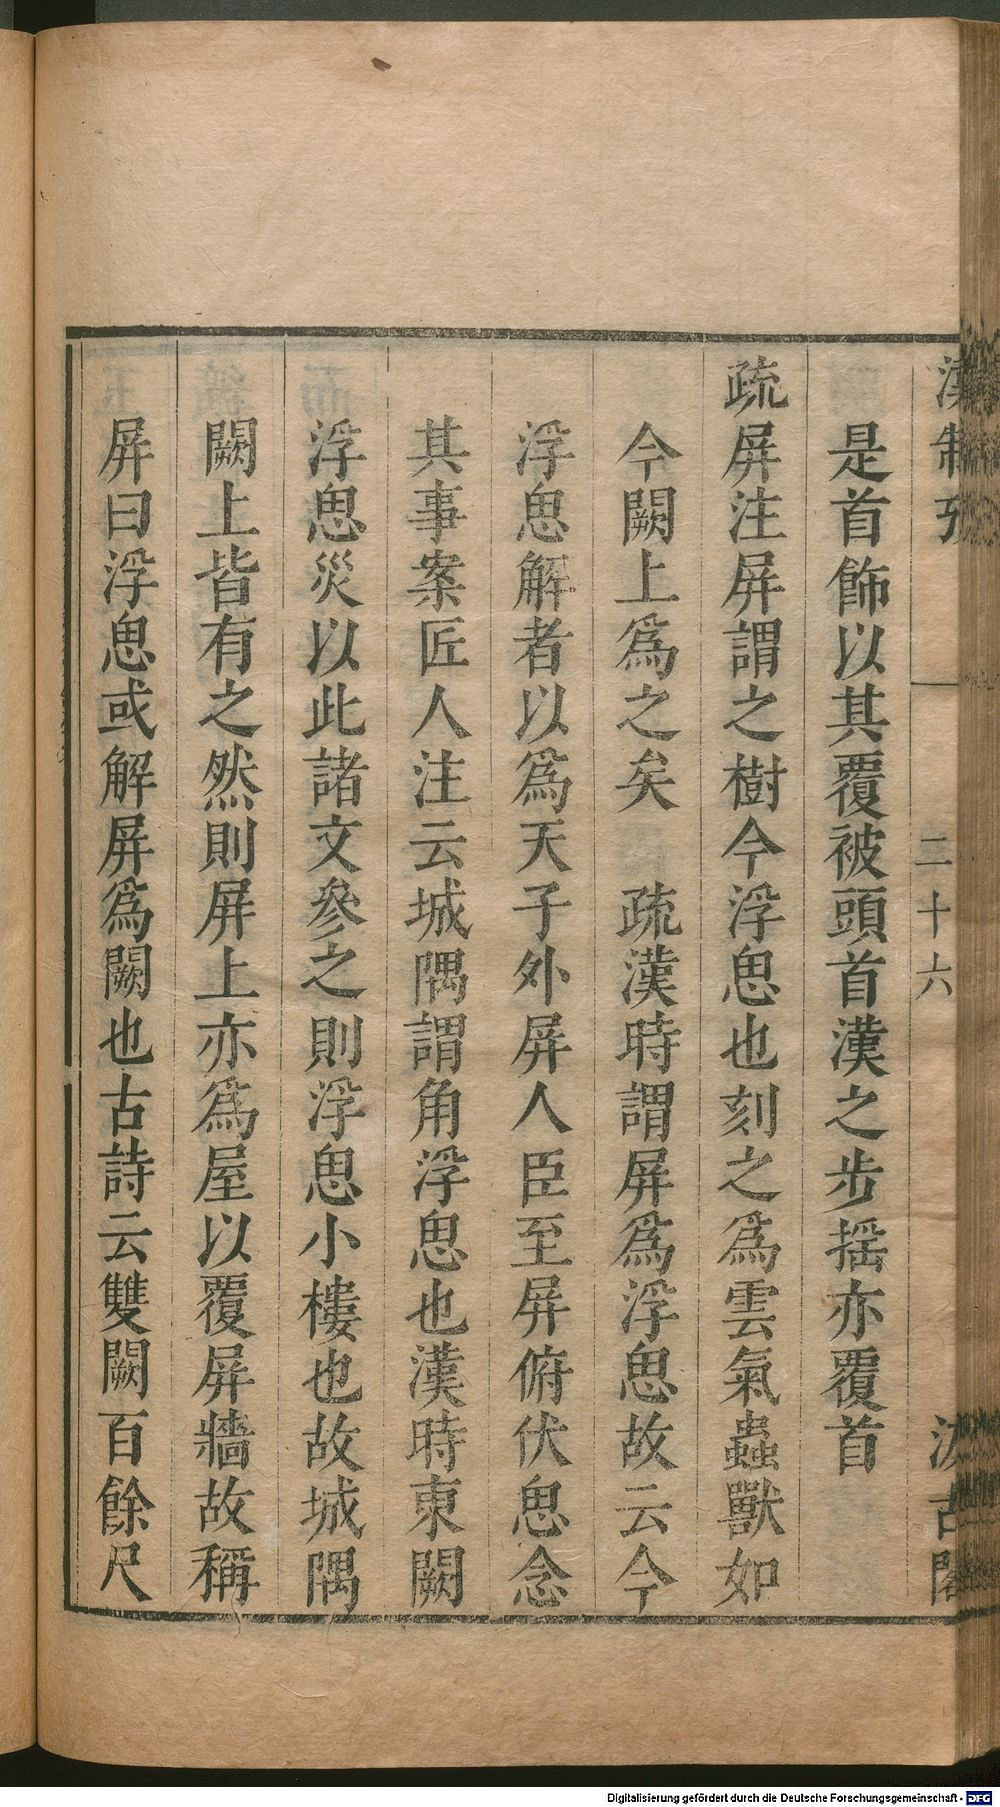 漢制攷
二十六
汲古閣
是首飾以其覆被頭首漢之步摇亦覆首
疏屏注屏謂之樹今浮思也刻之爲雲氣蟲獸如
今闕上爲之矣 疏漢時謂屏爲浮思故云今
浮思解者以爲天子外屏人臣至屏俯伏思念
其事案匠人注云城隅謂角浮思也漢時東闕
浮思災以此諸文參之則浮思小樓也故城隅
闕上皆有之然則屏上亦爲屋以覆屏牆故稱
屏曰浮思或解屏爲闕也古詩云雙闕百餘尺
Digitalisierung gefördert durch die Deutsche Forschungsgemeinschaft - DFG